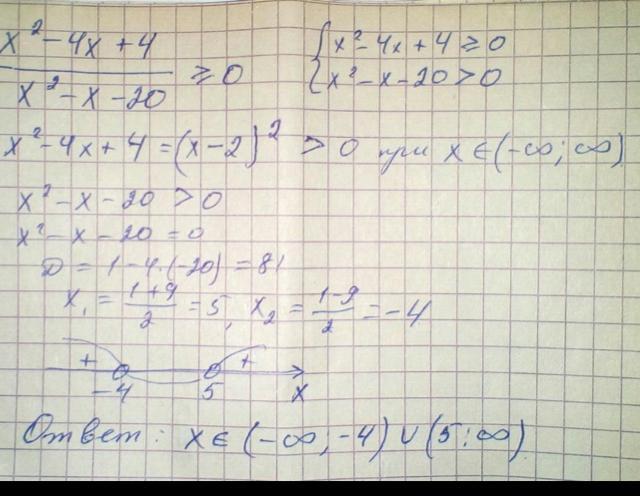 x² - 4x + 4 / x² - x - 20 ≥ 0
{ x² - 4x + 4 ≥ 0
x² - x - 20 > 0
x² - 4x + 4 = (x - 2)² > 0 при x ∈ (-∞; ∞)
x² - x - 20 > 0
x² - x - 20 = 0
D = 1 - 4·(-20) = 81
x₁ = (1+9)/2 = 5, x₂ = (1-9)/2 = -4
+ +
-4 5 x
Ответ: x ∈ (-∞; -4) ∪ (5; ∞)